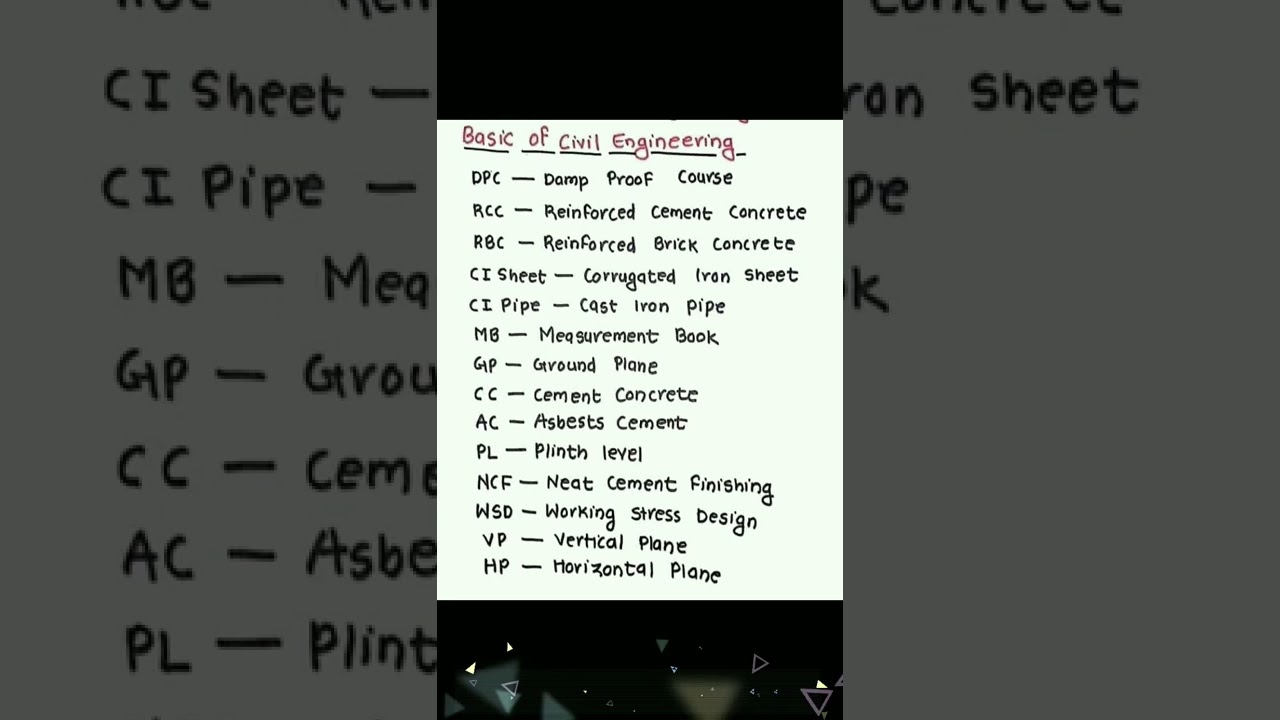 Basic of Civil Engineering
DPC — Damp Proof Course
RCC — Reinforced Cement Concrete
RBC — Reinforced Brick Concrete
CI Sheet — Corrugated Iron Sheet
CI Pipe — Cast Iron Pipe
MB — Measurement Book
GP — Ground Plane
CC — Cement Concrete
AC — Asbests Cement
PL — Plinth level
NCF — Neat Cement Finishing
WSD — Working Stress Design
VP — Vertical Plane
HP — Horizontal Plane